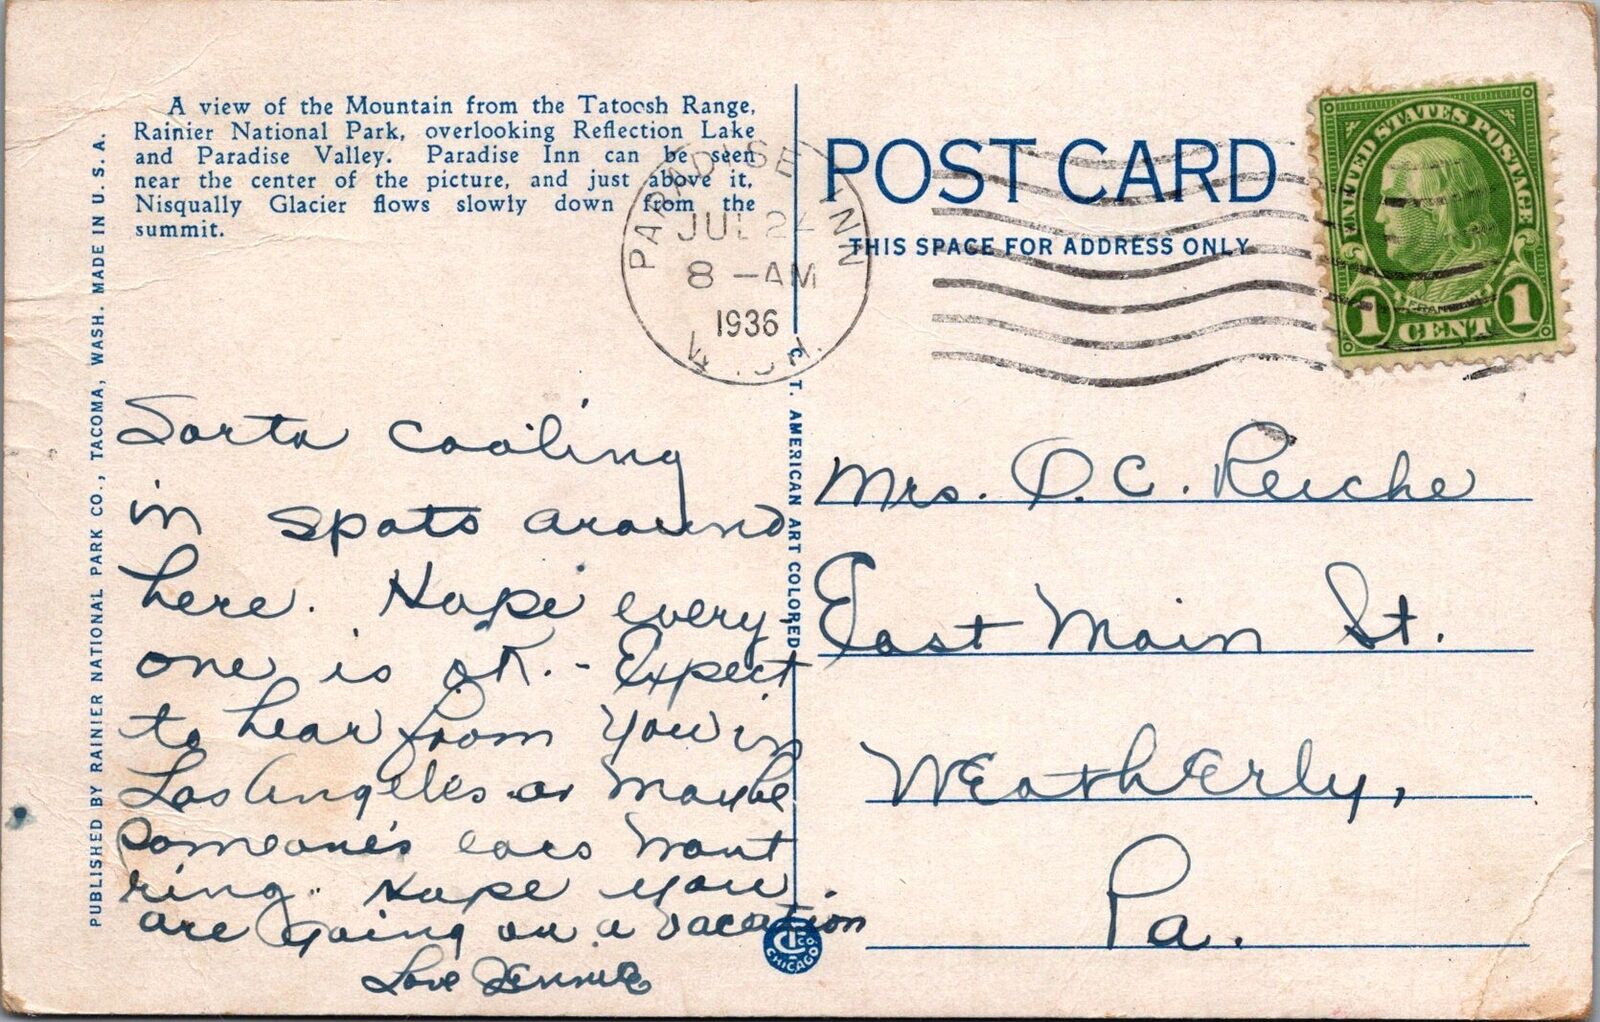 A view of the Mountain from the Tatoosh Range,
Rainier National Park, overlooking Reflection Lake
and Paradise Valley. Paradise Inn can be seen
near the center of the picture, and just above it,
Nisqually Glacier flows slowly down from the
summit.
PUBLISHED BY RAINIER NATIONAL PARK CO., TACOMA, WASH. MADE IN U.S.A.
PARADISE INN
JUL 24
8 -AM
1936
WASH.
C. T. AMERICAN ART COLORED
POST CARD
THIS SPACE FOR ADDRESS ONLY
UNITED STATES POSTAGE
FRANKLIN
1 CENT 1
Sorta cooling
in spots around
here. Hope every-
one is OK. - Expect
to hear from you in
Los Angeles or maybe
someone's ears wont
ring. Hope you
are going on a vacation
Love Jennie
Mrs. O. C. Reiche
East Main St.
Weatherly,
Pa.
CT CO.
CHICAGO